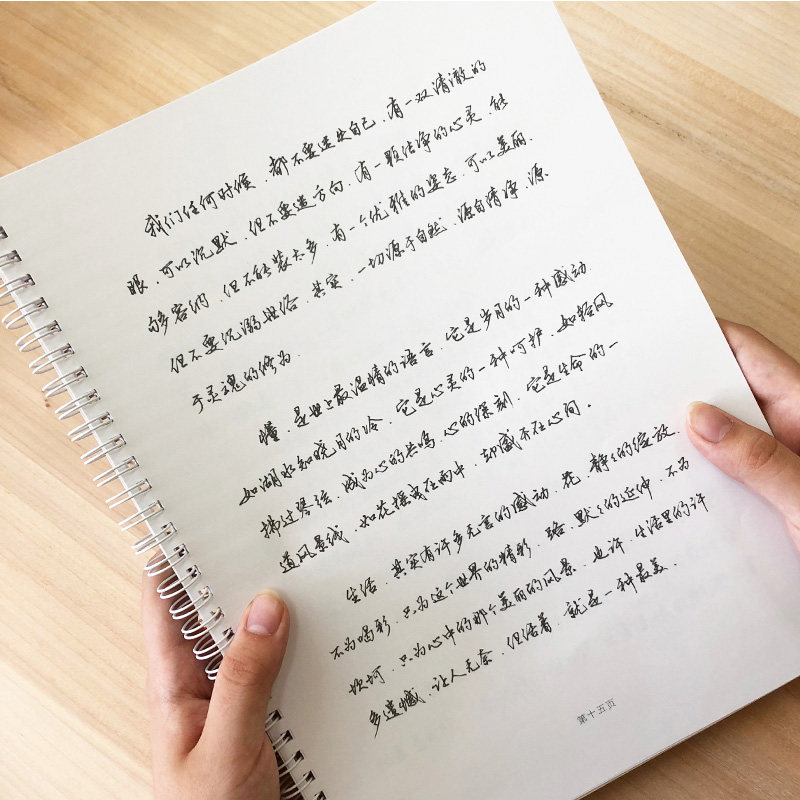 我们任何时候、都不要迷失自己、有一双清澈的
眼、可以沉默、但不要迷方向、有一颗洁净的心灵、能
够容纳、但不能装太多、有一个优雅的姿态、可以美丽、
但不要沉溺世俗、其实、一切源于自然、源自清净、源
于灵魂的修为、
懂、是世上最温情的语言、它是岁月的一种感动、
如湖水知晓月的冷、它是心灵的一种呵护、如轻风
拂过琴弦、成为心的共鸣、心的深刻、它是生命的一
道风景线、如花摇曳在雨中、却盛开在心间。
生活、其实有许多无言的感动、花、静静的绽放、
不为喝彩、只为这个世界的精彩、路、默默的延伸、不为
坎坷、只为心中的那个美丽的风景、也许、生活里的许
多遗憾、让人无奈、但活着、就是一种最美、
第十五页